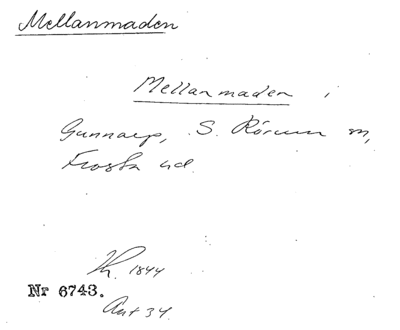 Mellanmaden
Mellanmaden i
Gunnarp, S. Rörum sn,
Frosta hd.
1844
Nr 6743.
Ant 34.